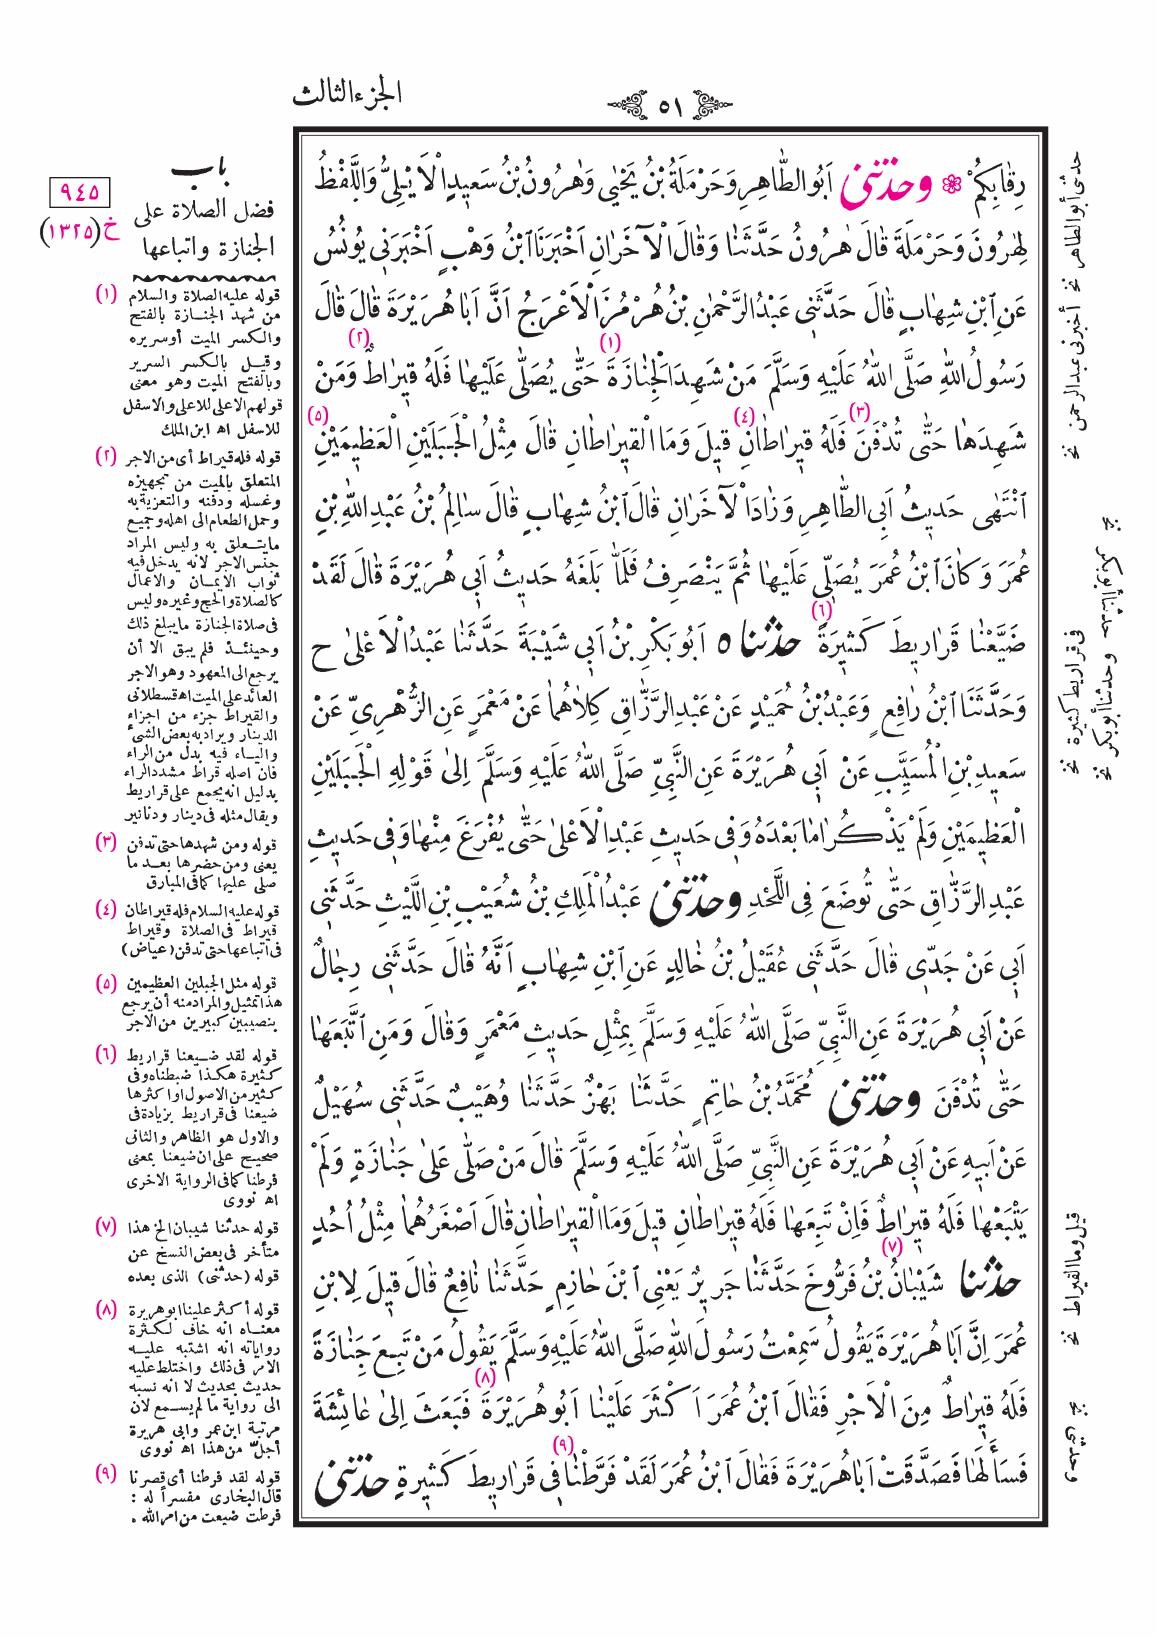 الجزء الثالث
٥١
رِقَابِكُمْ ۞ وحدثنى اَبُو الطَّاهِرِ وَحَرْمَلَةُ بْنُ يَحْيٰى وَهٰرُونُ بْنُ سَعِيدٍ الْاَيْلِىُّ وَاللَّفْظُ
لِهٰرُونَ وَحَرْمَلَةَ قَالَ هٰرُونُ حَدَّثَنَا وَقَالَ الْآخَرَانِ اَخْبَرَنَا ابْنُ وَهْبٍ اَخْبَرَنِى يُونُسُ
عَنِ ابْنِ شِهَابٍ قَالَ حَدَّثَنِى عَبْدُ الرَّحْمٰنِ بْنُ هُرْمُزَ الْاَعْرَجُ اَنَّ اَبَا هُرَيْرَةَ قَالَ قَالَ
رَسُولُ اللّٰهِ صَلَّى اللّٰهُ عَلَيْهِ وَسَلَّمَ مَنْ شَهِدَ الْجَنَازَةَ (١) حَتّٰى يُصَلّٰى عَلَيْهَا فَلَهُ قِيرَاطٌ (٢) وَمَنْ
شَهِدَهَا حَتّٰى تُدْفَنَ (٣) فَلَهُ قِيرَاطَانِ (٤) قِيلَ وَمَا الْقِيرَاطَانِ قَالَ مِثْلُ الْجَبَلَيْنِ الْعَظِيمَيْنِ (٥)
اَنْتَهٰى حَدِيثُ اَبِى الطَّاهِرِ وَزَادَ الْآخَرَانِ قَالَ ابْنُ شِهَابٍ قَالَ سَالِمُ بْنُ عَبْدِ اللّٰهِ بْنِ
عُمَرَ وَكَانَ ابْنُ عُمَرَ يُصَلِّى عَلَيْهَا ثُمَّ يَنْصَرِفُ فَلَمَّا بَلَغَهُ حَدِيثُ اَبِى هُرَيْرَةَ قَالَ لَقَدْ
ضَيَّعْنَا قَرَارِيطَ كَثِيرَةً (٦) حدثنا ٥ اَبُو بَكْرِ بْنُ اَبِى شَيْبَةَ حَدَّثَنَا عَبْدُ الْاَعْلٰى ح
وَحَدَّثَنَا ابْنُ رَافِعٍ وَعَبْدُ بْنُ حُمَيْدٍ عَنْ عَبْدِ الرَّزَّاقِ كِلَاهُمَا عَنْ مَعْمَرٍ عَنِ الزُّهْرِىِّ عَنْ
سَعِيدِ بْنِ الْمُسَيَّبِ عَنْ اَبِى هُرَيْرَةَ عَنِ النَّبِىِّ صَلَّى اللّٰهُ عَلَيْهِ وَسَلَّمَ اِلٰى قَوْلِهِ الْجَبَلَيْنِ
الْعَظِيمَيْنِ وَلَمْ يَذْكُرَا مَا بَعْدَهُ وَفِى حَدِيثِ عَبْدِ الْاَعْلٰى حَتّٰى يُفْرَغَ مِنْهَا وَفِى حَدِيثِ
عَبْدِ الرَّزَّاقِ حَتّٰى تُوضَعَ فِى اللَّحْدِ وحدثنى عَبْدُ الْمَلِكِ بْنُ شُعَيْبِ بْنِ اللَّيْثِ حَدَّثَنِى
اَبِى عَنْ جَدِّى قَالَ حَدَّثَنِى عُقَيْلُ بْنُ خَالِدٍ عَنِ ابْنِ شِهَابٍ اَنَّهُ قَالَ حَدَّثَنِى رِجَالٌ
عَنْ اَبِى هُرَيْرَةَ عَنِ النَّبِىِّ صَلَّى اللّٰهُ عَلَيْهِ وَسَلَّمَ بِمِثْلِ حَدِيثِ مَعْمَرٍ وَقَالَ وَمَنِ اتَّبَعَهَا
حَتّٰى تُدْفَنَ وحدثنى مُحَمَّدُ بْنُ حَاتِمٍ حَدَّثَنَا بَهْزٌ حَدَّثَنَا وُهَيْبٌ حَدَّثَنِى سُهَيْلٌ
عَنْ اَبِيهِ عَنْ اَبِى هُرَيْرَةَ عَنِ النَّبِىِّ صَلَّى اللّٰهُ عَلَيْهِ وَسَلَّمَ قَالَ مَنْ صَلّٰى عَلٰى جَنَازَةٍ وَلَمْ
يَتْبَعْهَا فَلَهُ قِيرَاطٌ فَاِنْ تَبِعَهَا فَلَهُ قِيرَاطَانِ قِيلَ وَمَا الْقِيرَاطَانِ قَالَ اَصْغَرُهُمَا مِثْلُ اُحُدٍ
حدثنا شَيْبَانُ (٧) بْنُ فَرُّوخَ حَدَّثَنَا جَرِيرٌ يَعْنِى ابْنَ حَازِمٍ حَدَّثَنَا نَافِعٌ قَالَ قِيلَ لِابْنِ
عُمَرَ اِنَّ اَبَا هُرَيْرَةَ يَقُولُ سَمِعْتُ رَسُولَ اللّٰهِ صَلَّى اللّٰهُ عَلَيْهِ وَسَلَّمَ يَقُولُ مَنْ تَبِعَ جَنَازَةً
فَلَهُ قِيرَاطٌ مِنَ الْاَجْرِ فَقَالَ ابْنُ عُمَرَ اَكْثَرَ عَلَيْنَا اَبُو هُرَيْرَةَ (٨) فَبَعَثَ اِلٰى عَائِشَةَ
فَسَأَلَهَا فَصَدَّقَتْ اَبَا هُرَيْرَةَ فَقَالَ ابْنُ عُمَرَ لَقَدْ فَرَّطْنَا (٩) فِى قَرَارِيطَ كَثِيرَةٍ حدثنى
باب
فضل الصلاة على
الجنازة واتباعها
٩٤٥
خ (١٣٢٥)
(١) قوله عليه الصلاة والسلام
من شهد الجنازة بالفتح
والكسر الميت أو سريره
وقيل بالكسر السرير
وبالفتح الميت وهو معنى
قولهم الاعلى للاعلى والاسفل
للاسفل اه ابن الملك
(٢) قوله فله قيراط أى من الاجر
المتعلق بالميت من تجهيزه
وغسله ودفنه والتعزية به
وحمل الطعام الى اهله وجميع
ما يتعلق به وليس المراد
جنس الاجر لانه يدخل فيه
ثواب الايمان والاعمال
كالصلاة والحج وغيره وليس
فى صلاة الجنازة ما يبلغ ذلك
وحينئذ فلم يبق الا أن
يرجع الى المعهود وهو الاجر
العائد على الميت اه قسطلانى
والقيراط جزء من اجزاء
الدينار ويراد به بعض الشئ
والياء فيه بدل من الراء
فان اصله قراط مشدد الراء
بدليل انه يجمع على قراريط
ويقال مثله فى دينار ودنانير
(٣) قوله ومن شهدها حتى تدفن
يعنى ومن حضرها بعد ما
صلى عليها كما فى المبارق
(٤) قوله عليه السلام فله قيراطان
قيراط فى الصلاة وقيراط
فى اتباعها حتى تدفن (عياض)
(٥) قوله مثل الجبلين العظيمين
هذا تمثيل والمراد منه أن يرجع
بنصيبين كبيرين من الاجر
(٦) قوله لقد ضيعنا قراريط
كثيرة هكذا ضبطناه وفى
كثير من الاصول او اكثرها
ضيعنا فى قراريط بزيادة فى
والاول هو الظاهر والثانى
صحيح على ان ضيعنا بمعنى
فرطنا كما فى الرواية الاخرى
اه نووى
(٧) قوله حدثنا شيبان الخ هذا
متأخر فى بعض النسخ عن
قوله (حدثنى) الذى بعده
(٨) قوله أكثر علينا ابو هريرة
معناه انه خاف لكثرة
رواياته انه اشتبه عليه
الامر فى ذلك واختلط عليه
حديث بحديث لا انه نسبه
الى رواية ما لم يسمع لان
مرتبة ابن عمر وابى هريرة
أجلّ من هذا اه نووى
(٩) قوله لقد فرطنا أى قصرنا
قال البخارى مفسراً له :
فرطت ضيعت من امر الله .
حدثنى أبو الطاهر نخ أخبرنى عبد الرحمن نخ
فى قراريط كثيرة نخ
وحدثنا أبو بكر نخ
وحدثنا أبو بكر نخ
قيل وما القيراط نخ
وحدثنى نخ